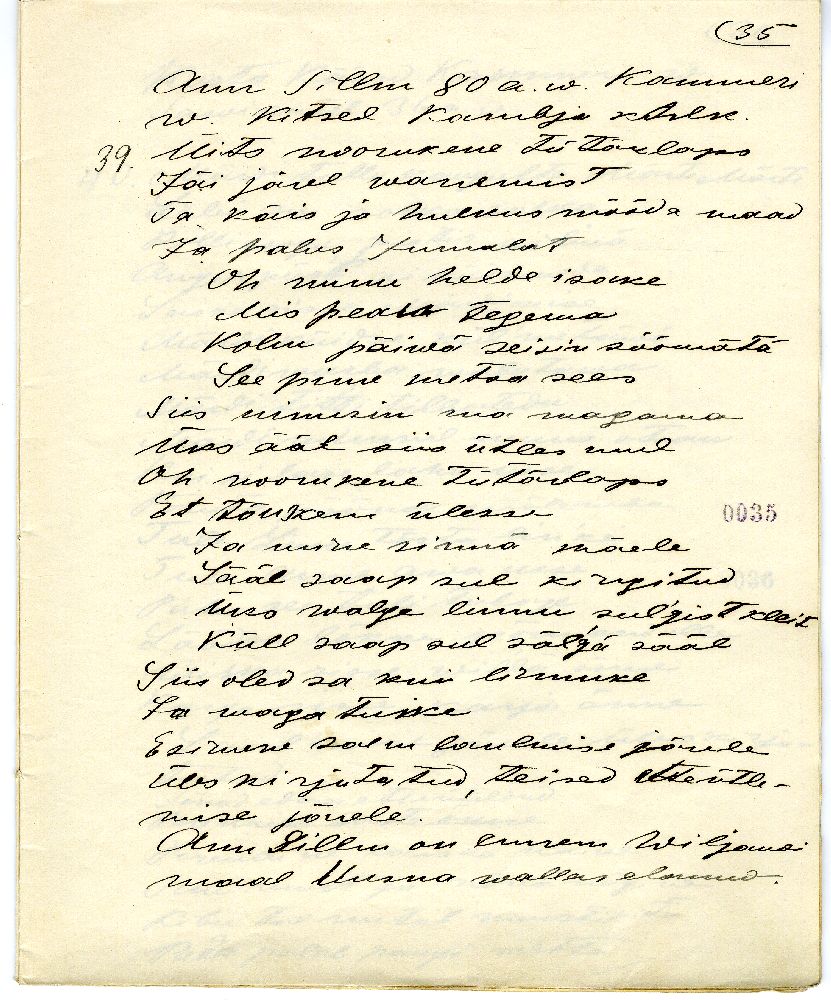 (35
Ann Sillm 80 a. w. Kammeri
w. Kitsel Kambja khlk.
39. Üits noorukene tütärlaps
Jäi järel wanemist
Ta käis ja hulkus mööda maad
Ja palus Jumalat
Oh minu helde isake
Mis pean tegema
Kolm päiwä seisin söömätä
See pime metsa sees
Siis uinusin ma magama
Üks ääl siis ütles mul
Oh noorukene tütärlaps
Et tõuse ülesse
0035
Ja mine sinnä mäele
Sääl saap sul kingitud
Üks walge linnu sulgist kleit
Küll saap sul sälgä sääl
Siis oled sa kui linnuke
Ja waga tuike
Esimene salm laulmise järele
üles kirjutatud, teised etteütle-
mise järele.
Ann Sillm on ennem Wiljandi
maal Uusna wallas elanud.